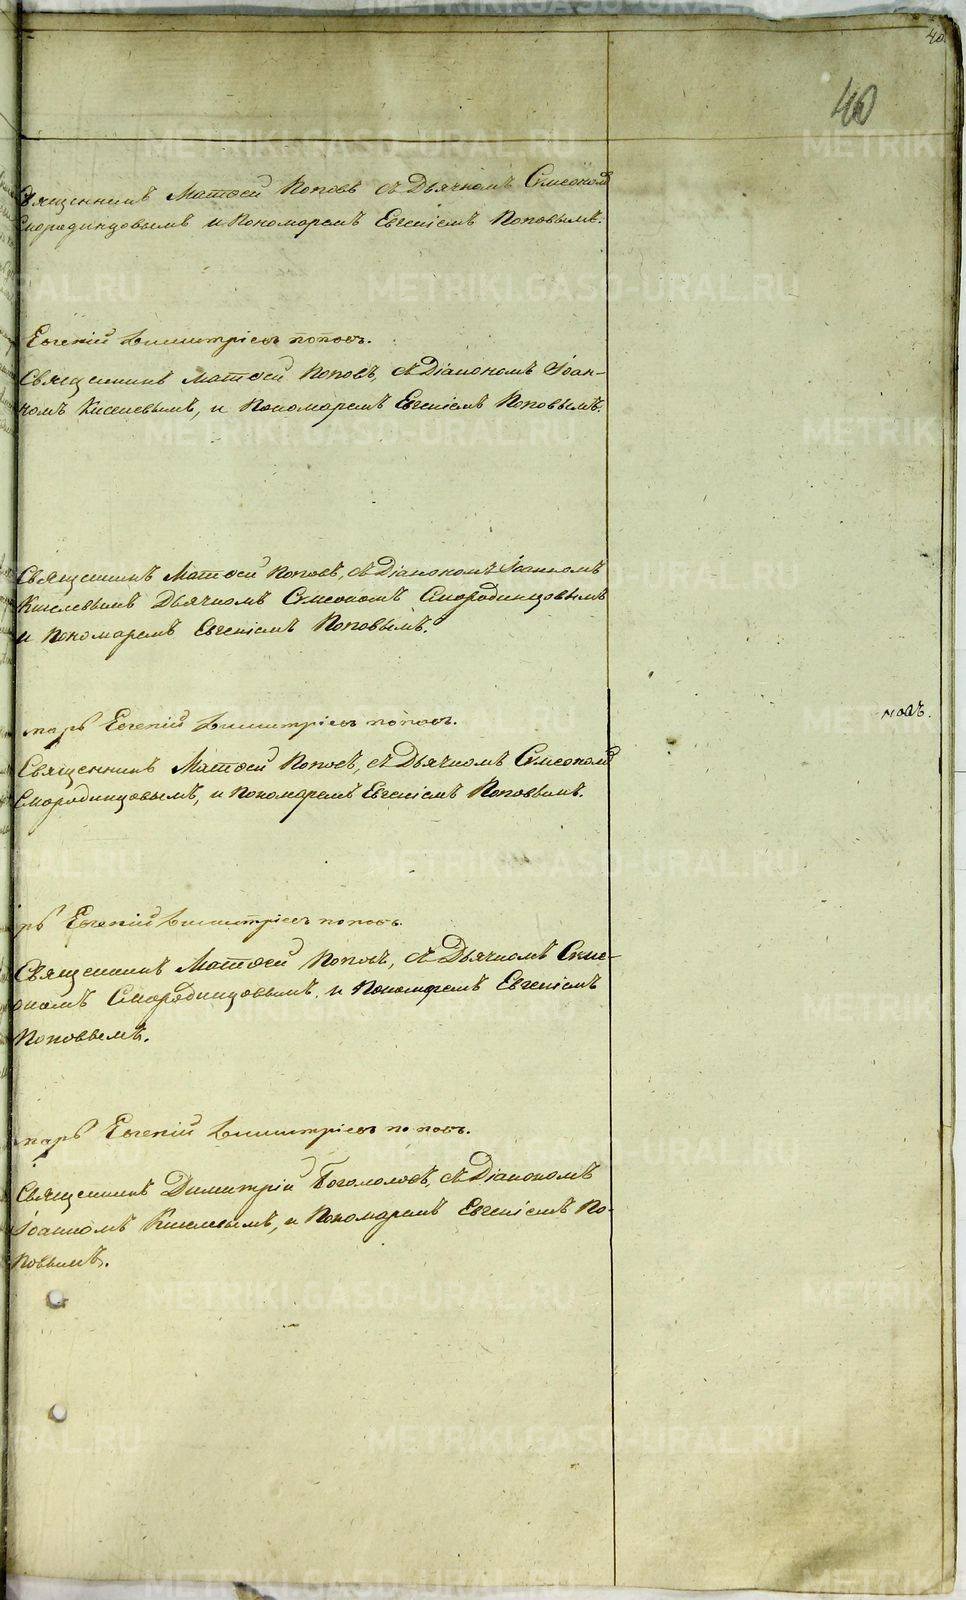 40
40
Священникъ Матѳей Поповъ съ Дьячкомъ Симеономъ
Смородинцовымъ и Пономаремъ Евгеніемъ Поповымъ.
Евгеній Димитріевъ Поповъ.
Священникъ Матѳей Поповъ, съ Діакономъ Іоан-
номъ Киселевымъ, и Пономаремъ Евгеніемъ Поповымъ.
Священникъ Матѳей Поповъ, съ Діакономъ Іоанномъ
Киселевымъ Дьячкомъ Симеономъ Смородинцовымъ
и Пономаремъ Евгеніемъ Поповымъ.
марь Евгеній Димитріевъ Поповъ.
Священникъ Матѳей Поповъ, съ Дьячкомъ Симеономъ
Смородинцовымъ, и Пономаремъ Евгеніемъ Поповымъ.
рь Евгеній Димитріевъ Поповъ.
Священникъ Матѳей Поповъ, съ Дьячкомъ Симе-
ономъ Смородинцовымъ, и Пономаремъ Евгеніемъ
Поповымъ.
марь Евгеній Димитріевъ Поповъ.
Священникъ Димитрій Богомоловъ, съ Діакономъ
Іоанномъ Киселевымъ, и Пономаремъ Евгеніемъ По-
повымъ.
METRIKI.GASO-URAL.RU